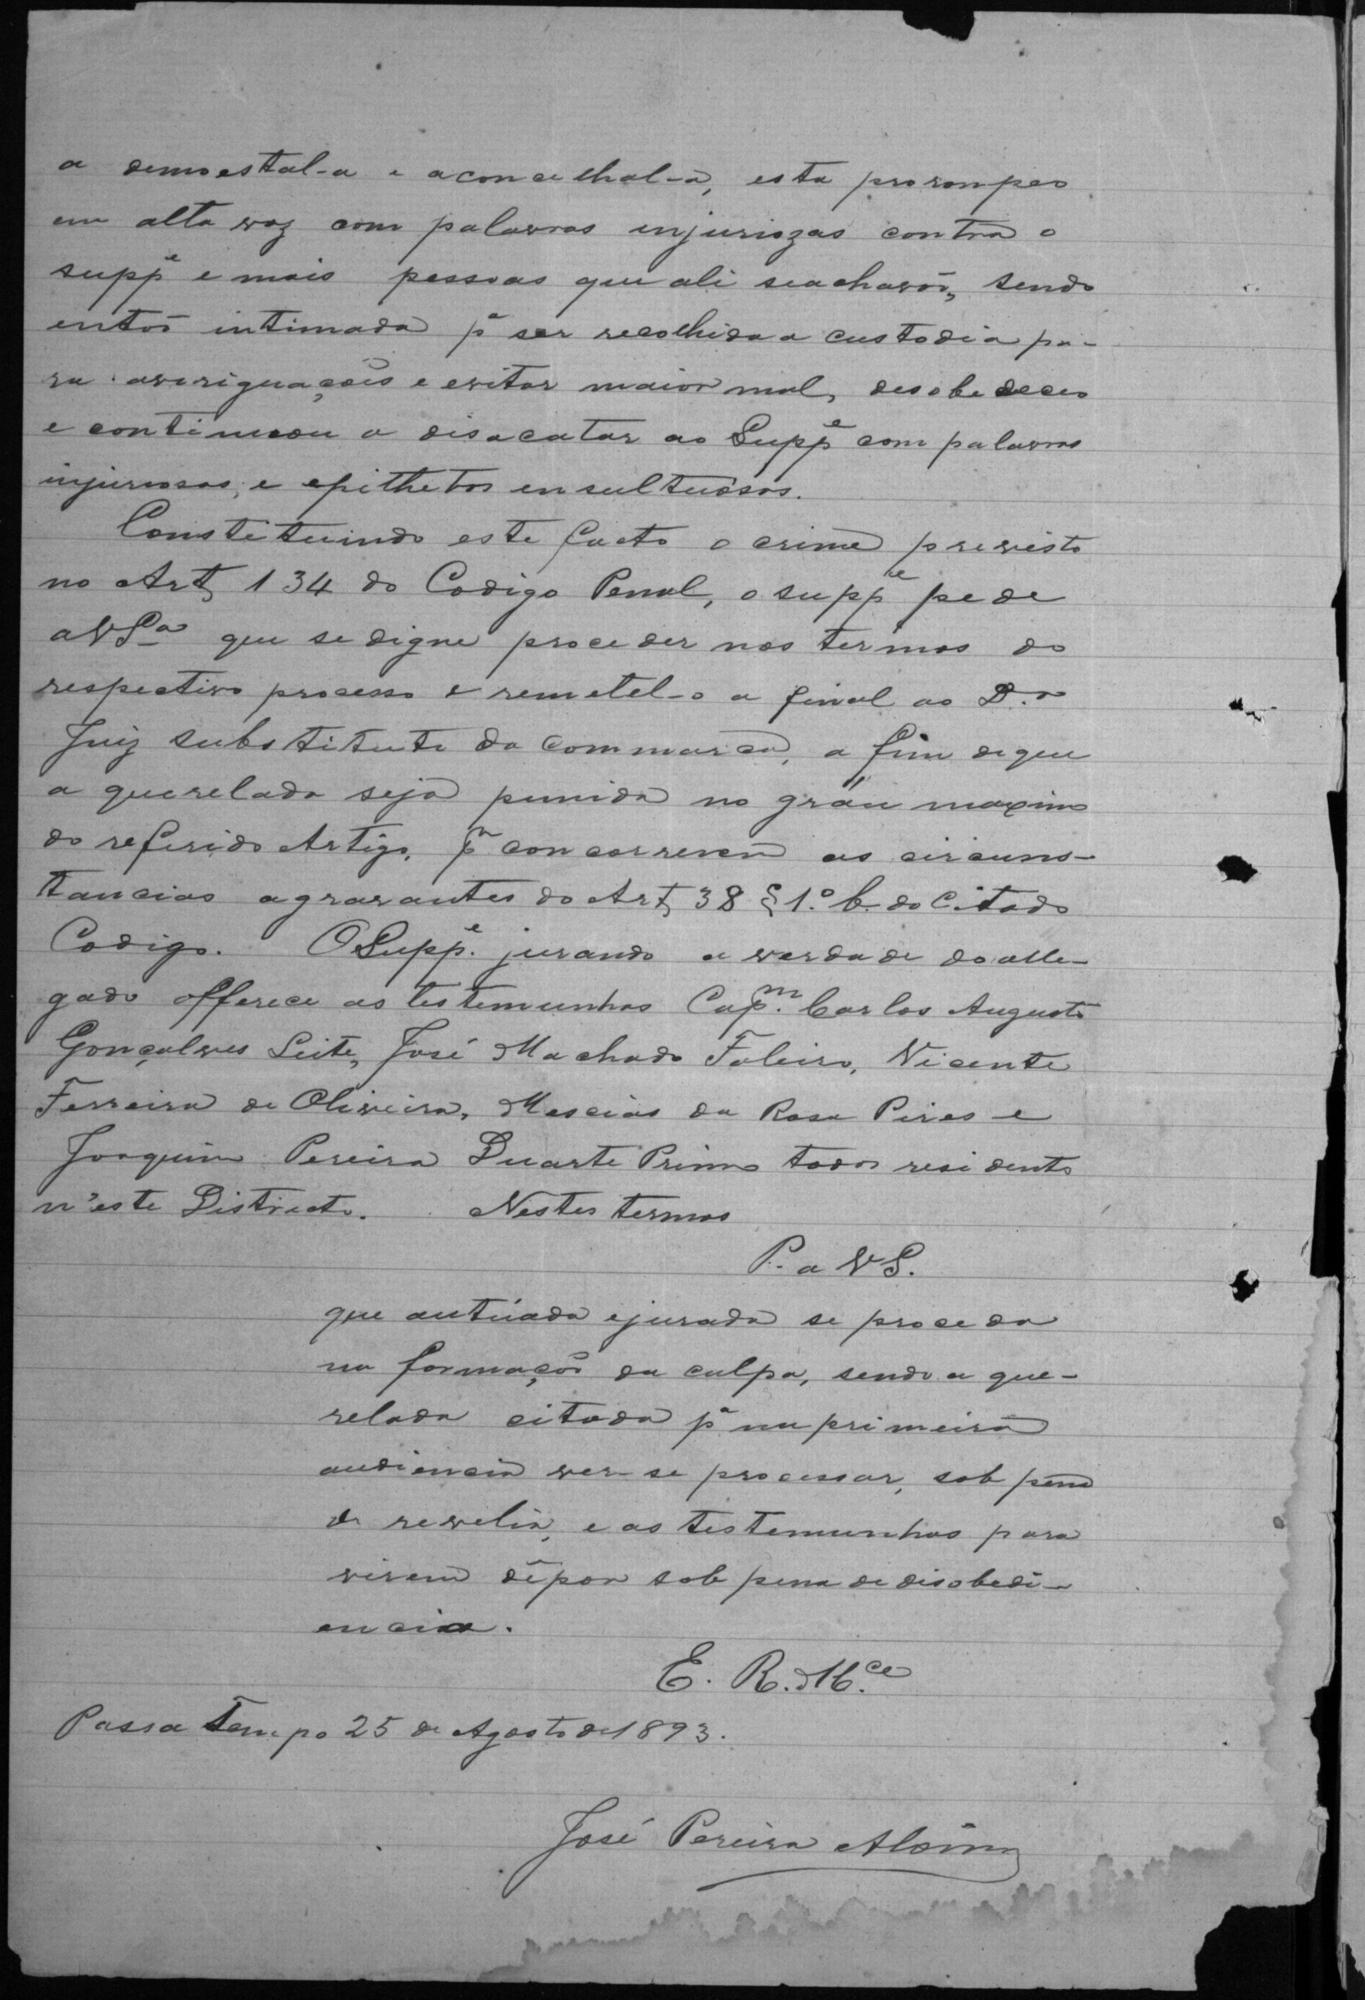 a demoestal-a e aconcelhal-a, esta prorompeo
em alta voz com palavras injuriozas contra o
supp.e e mais pessoas que ali seachavão, sendo
entõo intimada pa ser recolhida a custodia pa-
ra averiguações e evitar maior mal, desobedeceo
e continuou a disacatar ao Supp.e com palavras
injuriosas, e epithetos ensultuósos.
Constituindo este facto o crime previsto
no Art. 134 do Codigo Penal, o supp.e pede
a VSa que se digne proceder nos termos do
respectivo processo e remetel-o a final ao D.or
Juiz substituto da commarca, a fim de que
a querelada seja punida no gráu maximo
do referido Artigo, pa concorrerem as circuns-
tancias agravantes do Art. 38 § 1.º b. do Citado
Codigo. O Supp.e jurando a verdade do alle-
gado offerece as testemunhas Cap.m Carlos Augusto
Gonçalves Leite, José Machado Faleiro, Vicente
Ferreira de Oliveira, Mescias da Rosa Pires e
Joaquim Pereira Duarte Primo todos residente
n'este Districto. Nestes termos
P. a V S.
que autúada e jurada se proceda
na formação da culpa, sendo a que-
relada citada pa na primeira
audiencia ver-se processar, sob pena
de revelia, e as testemunhas para
virem dêpor sob pena de disobedi-
encia.
E. R. M.ce
Passa Tempo 25 de Agosto de 1893.
José Pereira